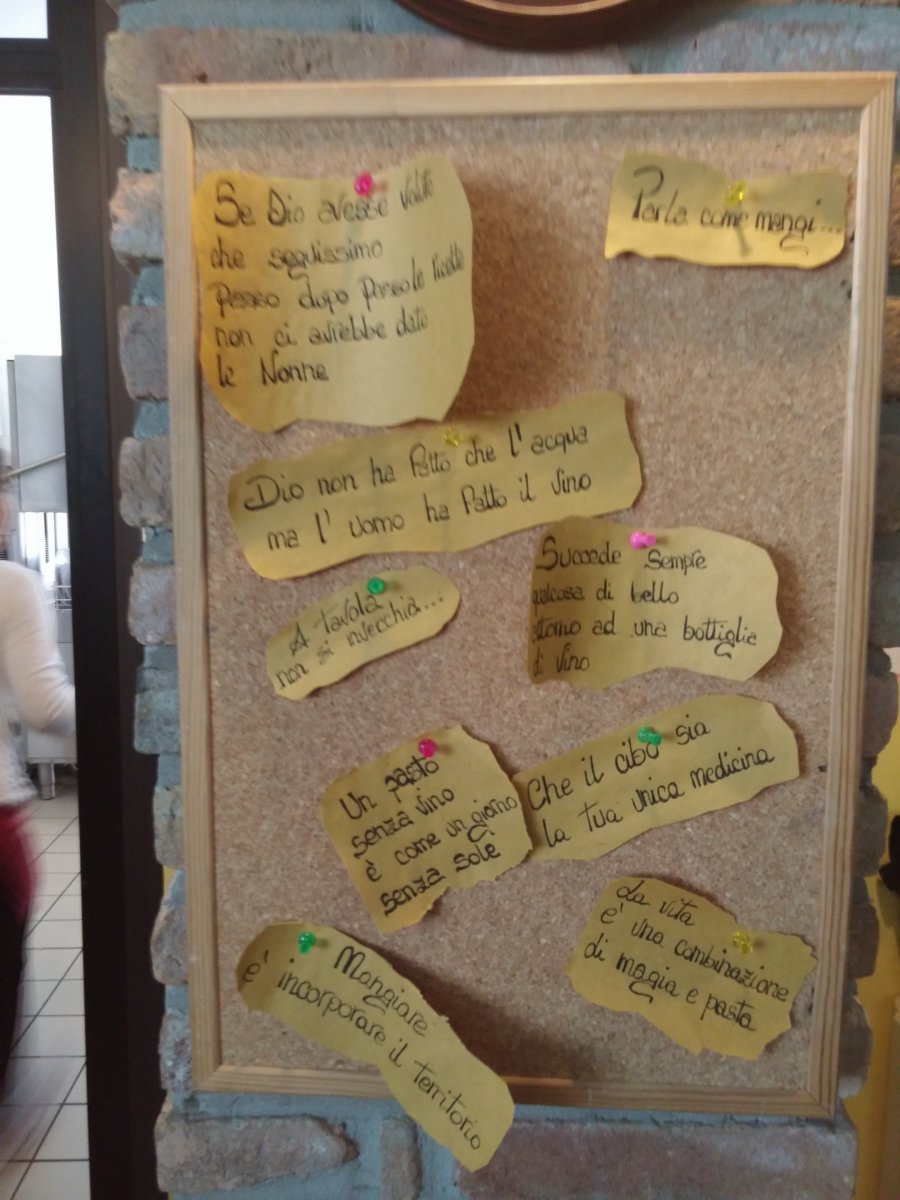 Se Dio avesse voluto
che seguissimo
passo dopo passo le ricette
non ci avrebbe dato
le Nonne
Parla come mangi...
Dio non ha fatto che l'acqua
ma l'uomo ha fatto il vino
Succede sempre
qualcosa di bello
attorno ad una bottiglia
di vino
A tavola
non si invecchia...
Che il cibo sia
la tua unica medicina
Un pasto
senza vino
è come un giorno
senza sole
La vita
e' una combinazione
di magia e pasta
Mangiare
e' incorporare il territorio